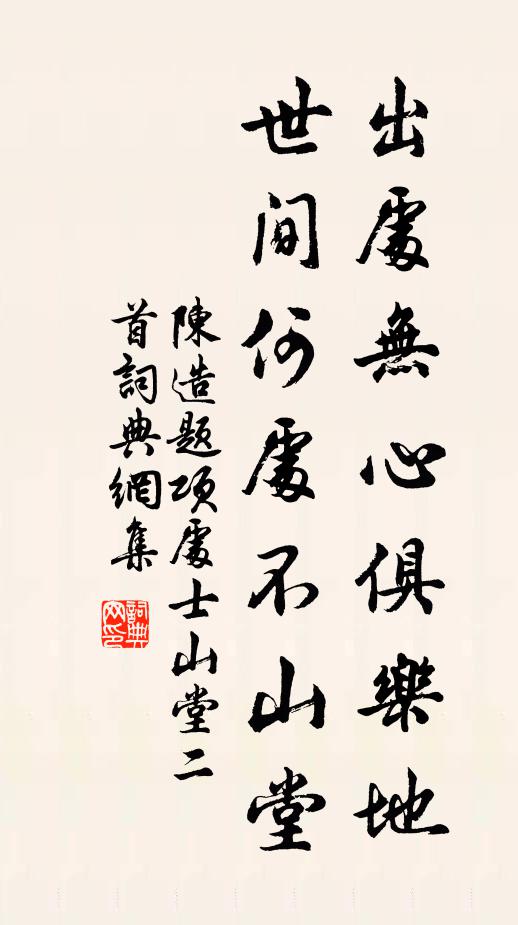 出處無心俱樂地
世間何處不山堂
陳造題項處士山堂二
首詞典網集
詞典
网印